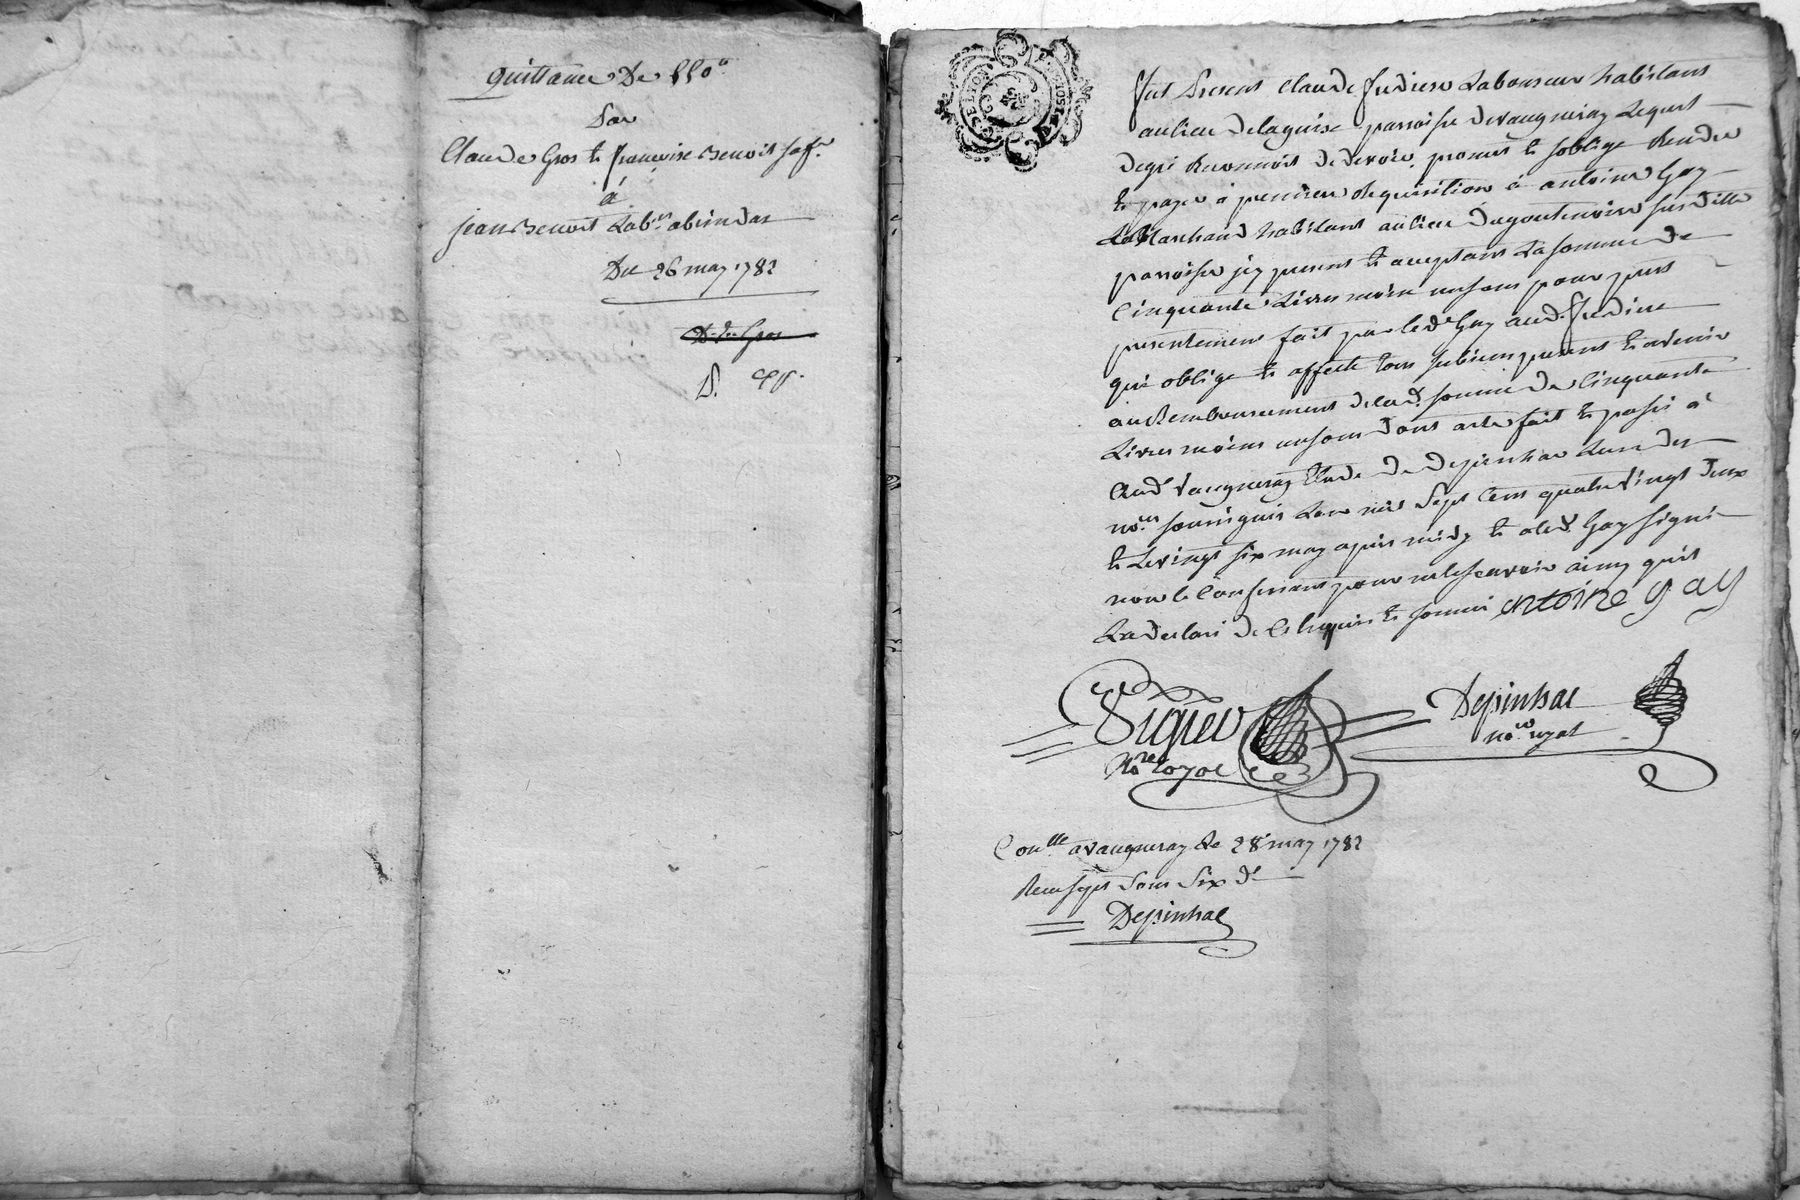 quittance De 550#
Par
Claude Gros & françoise Benoit sa f.e
à
jean Benoit Lab.r
Du 26 may 1782
D. des Gros
D.
G. DE LYON
Fut Present Claude Judieu Laboureur habitant
au lieu delaguise parroisse devaugneray Lequel
degré Reconnoit & devoir, promet & soblige Rendre
& payer à premiere requisition à antoine Gay
Marchand habitant au lieu susditte
parroisse jcy present & acceptant La somme de
Cinquante Livres moins un sous pour prest
presentement fait par led. Gay aud. Judieu
qui oblige & affecte tous ses biens present & avenir
au Remboursement delad. somme de Cinquante
Livres moins un sous dont acte fait & passé à
aud. vaugneray Etude de Depinhac Lun des
no.res soussignés Lan mil sept Cent quatre vingt deux
& Le vingt six may après midy & aled. Gay signé
non le Confessant pour ne le sçavoir ainsy quil
La declaré de ce Enquis & sommé antoine gay
Viguer
No.re Royal
Depinhac
no.re royal
Con.lle a vaugneray Le 28 may 1782
Recu sept sous six d.
Depinhac